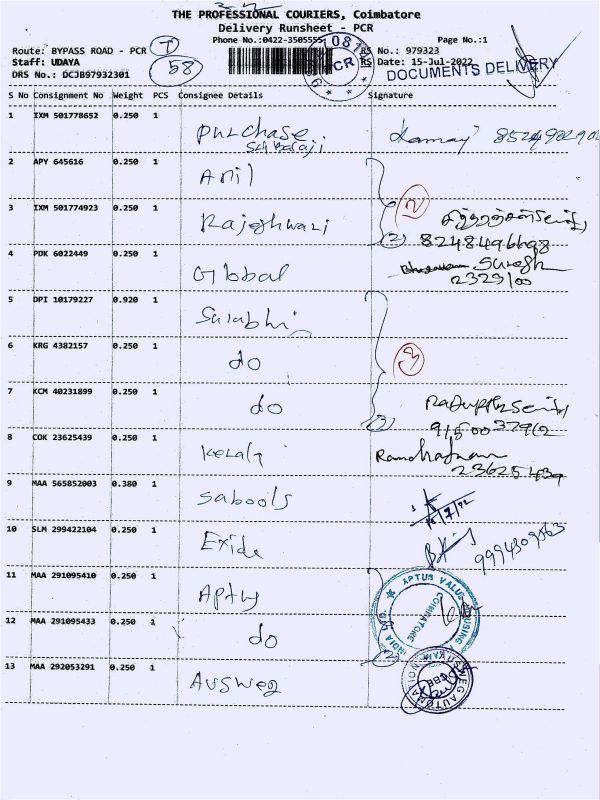 THE PROFESSIONAL COURIERS, Coimbatore
Delivery Runsheet - PCR
Phone No.:0422-3505555
Page No.:1
Route: BYPASS ROAD - PCR
T
RS No.: 979323
Staff: UDAYA
58
RS Date: 15-Jul-2022
DOCUMENTS DELIVERY
DRS No.: DCJB97932301
S No Consignment No Weight PCS Consignee Details Signature
1 IXM 501778652 0.250 1 Purchase
2 APY 645616 0.250 1 Anil
3 IXM 501774923 0.250 1 Rajeshwari
(2)
8248496698
4 PDK 6022449 0.250 1 Global Suresh
2329100
5 DPI 10179227 0.920 1 Sarabhi
6 KRG 4382157 0.250 1 do
3
7 KCM 40231899 0.250 1 do
8 COK 23625439 0.250 1
9 MAA 565852003 0.380 1 Sabools
10 SLM 299422104 0.250 1 Exide
11 MAA 291095410 0.250 1 Aptus
APTUS VALUE HOUSING
COIMBATORE
12 MAA 291095433 0.250 1 do
13 MAA 292053291 0.250 1 Ausweg
AUSWEG AUTOMATION